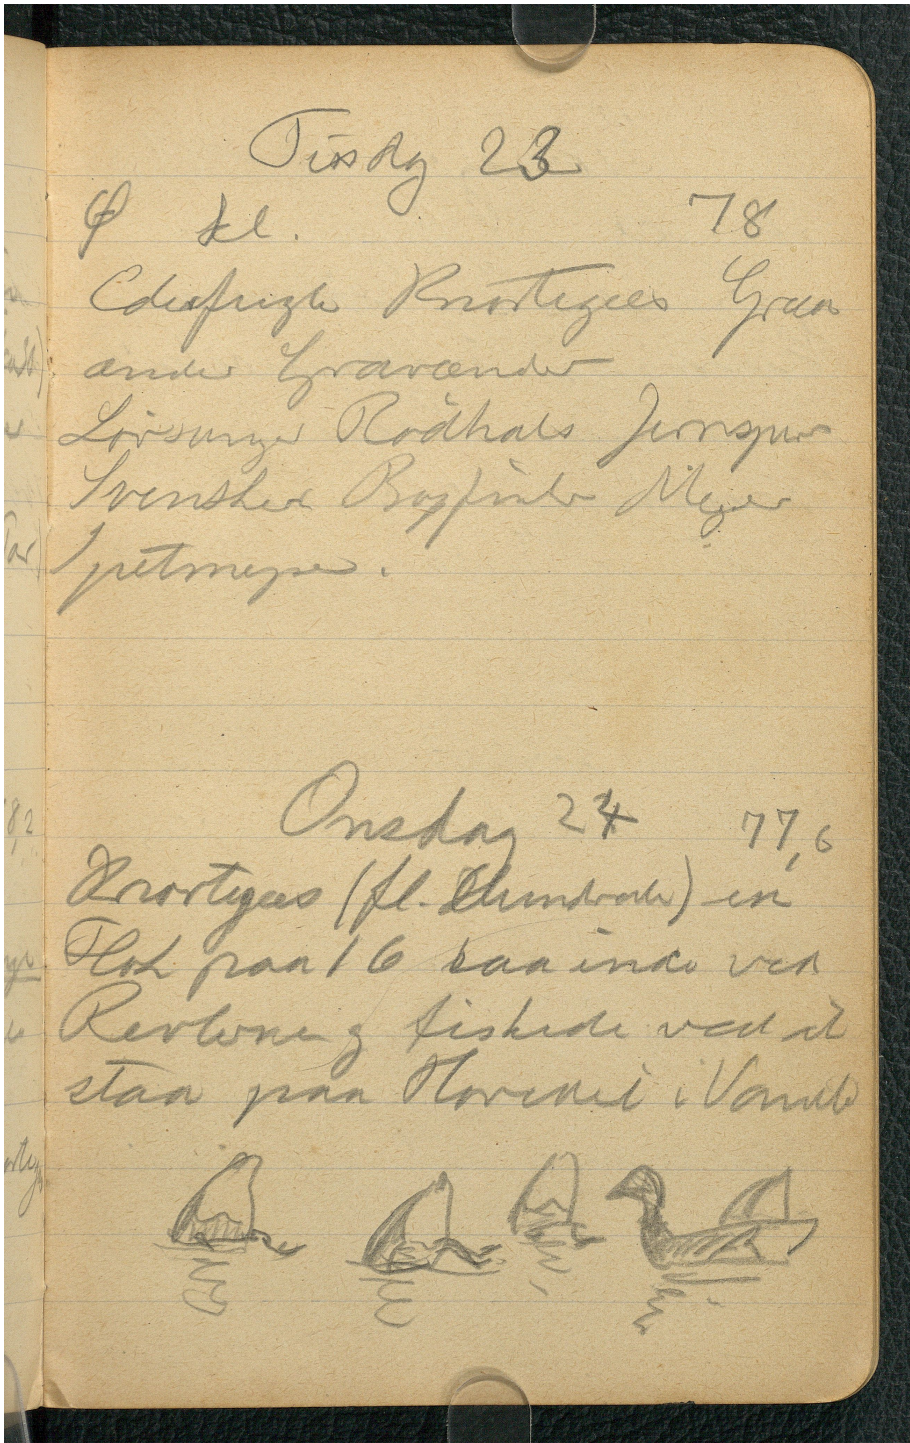 Tirsdag 23
Φ kl. 78
Ederfugle Knortegæs Graa
ænder Gravænder
Løvsanger Rødhals Jernspur
Svensker Bogfinker Mejser
Spetmejse.
Onsdag 24 77,6
Knortegæs (fl. Hundrede) en
Flok paa 16 saa inde ved
Revlerne og fiskede ved at
staa paa Hovedet i Vandet